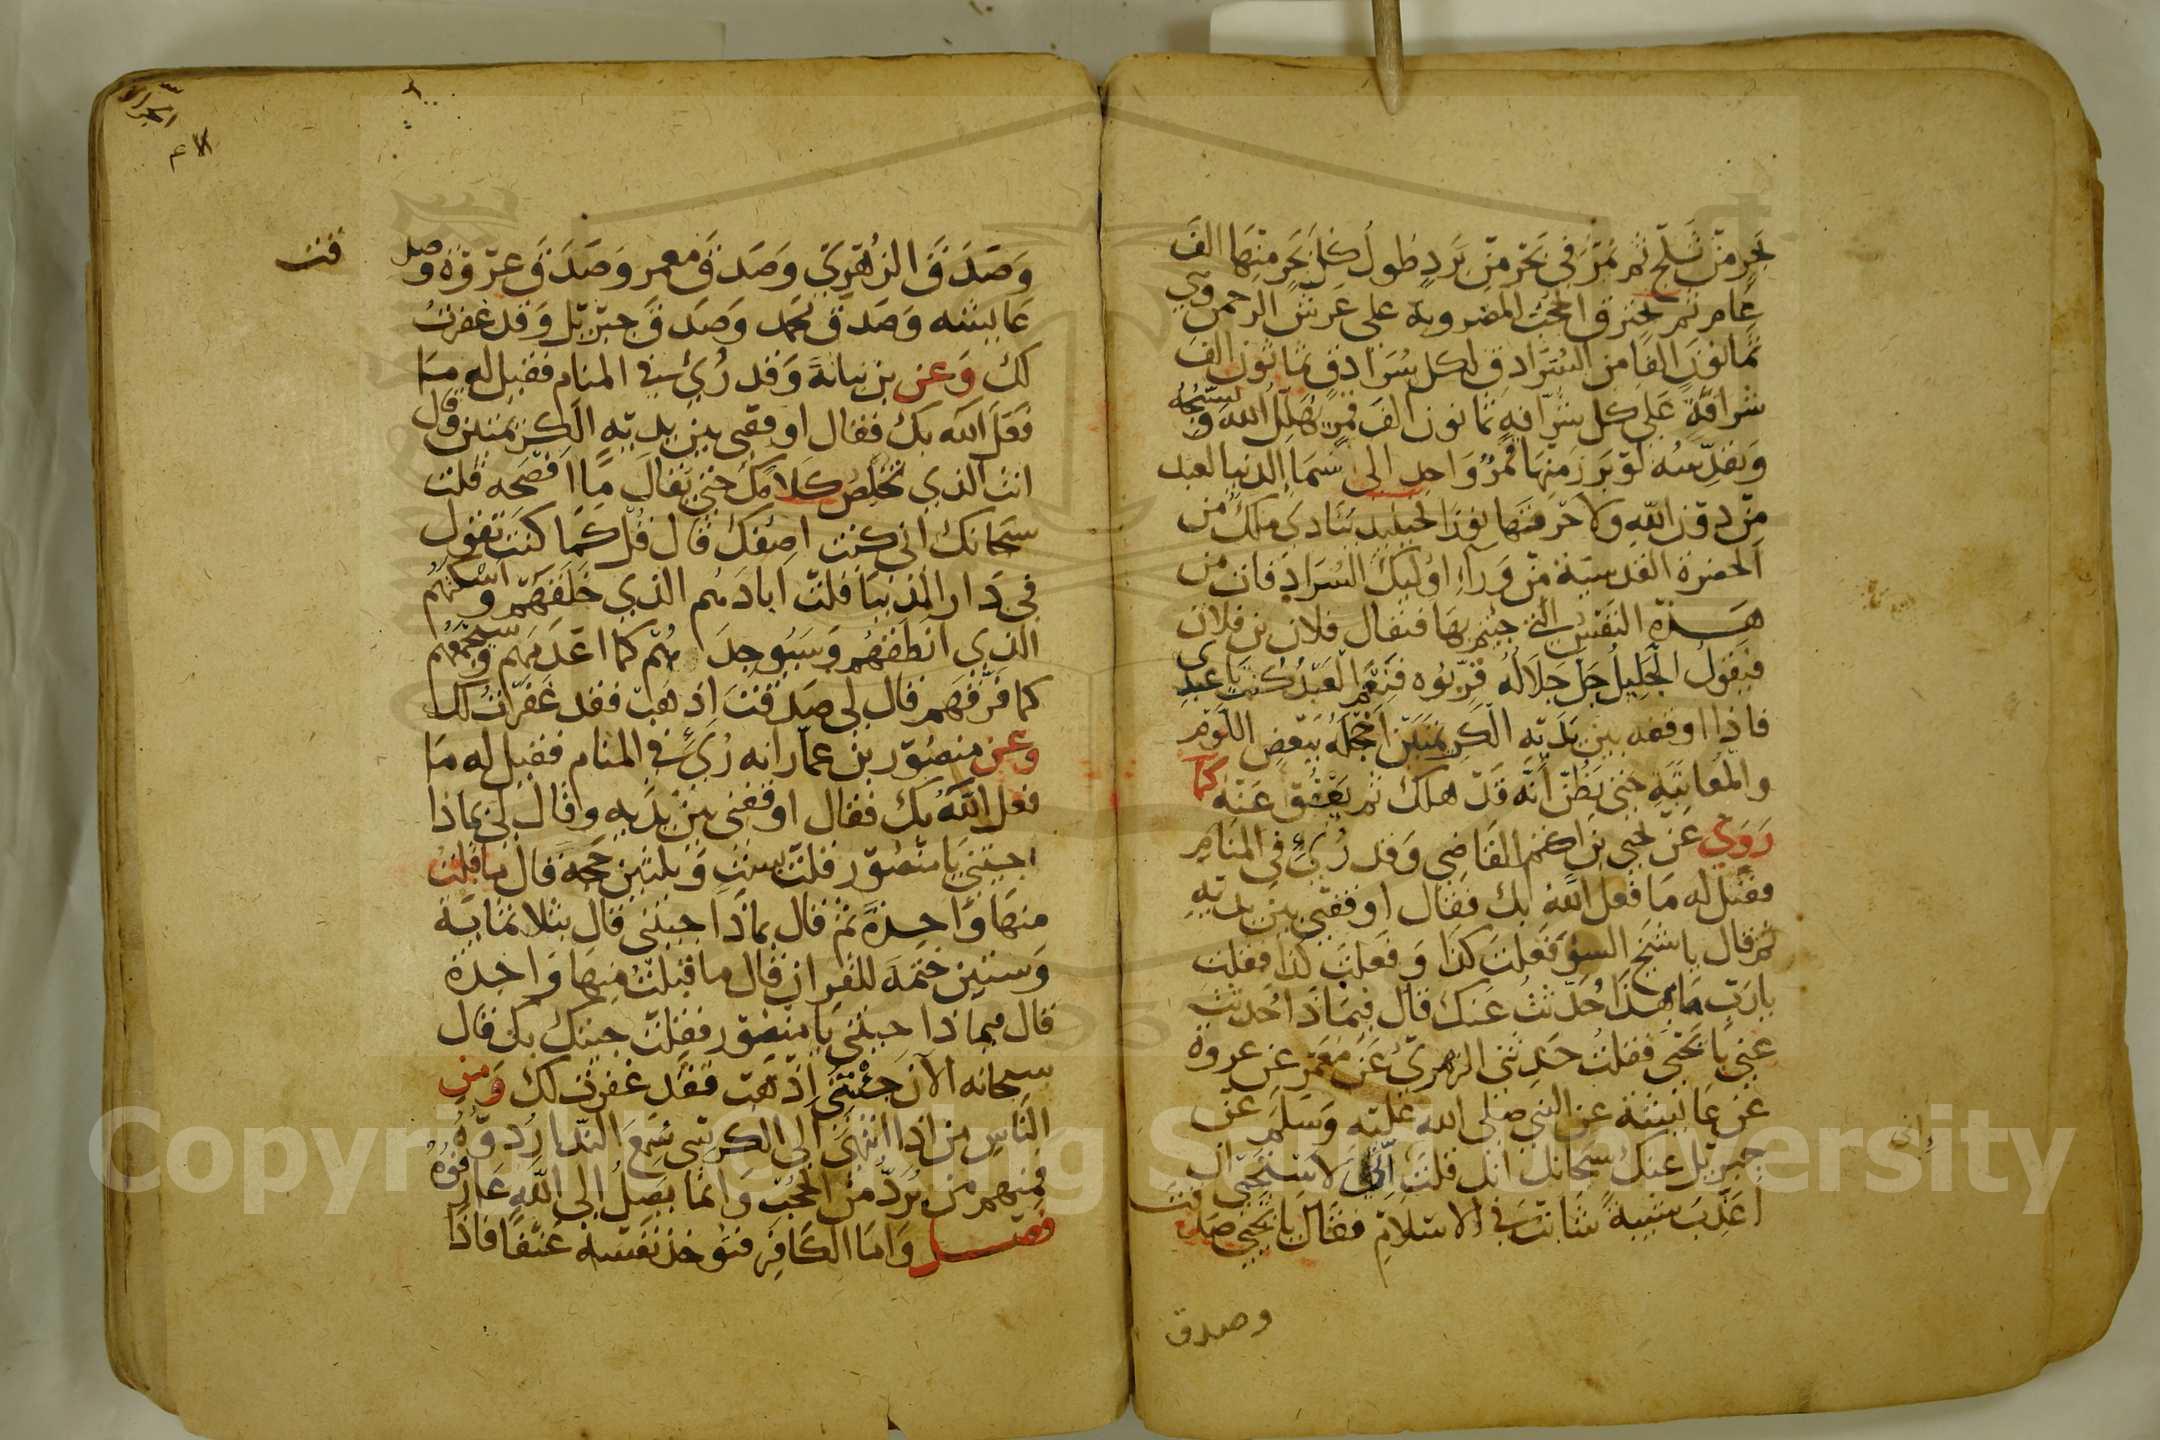 بحر من ثلج ثم تمر في بحر من برد طول كل بحر منها الف
عام ثم تخترق الحجب المضروبة على عرش الرحمن وهي
ثمانون الفا من السرادق لكل سرادق ثمانون الف
شرافة على كل شرافة ثمانون الف قمر يهلل الله ويسبحه
ويقدسه لو برز منها قمر واحد الى سما الدنيا لعبد
من دون الله ولاحرقتها نورا فحينئذ ينادى ملك من
الحضرة القدسية من وراء اوليك السرادقات من
هذه النفس التي جيتم بها فيقال فلان بن فلان
فيقول الجليل جل جلاله قربوه فنعم العبد كنت يا عبدي
فاذا اوقفه بين يديه الكريمتين اخجله ببعض اللوم
والمعاتبة حتى يظن انه قد هلك ثم يعفو عنه كما
روي عن يحيى بن اكثم القاضي وقد رئ في المنام
فقيل له ما فعل الله بك فقال اوقفني بين يديه
ثم قال يا شيخ السو فعلت كذا وفعلت كذا فقلت
يا رب ما بهذا حدثت عنك قال فبماذا حدثت
عني يا يحيى فقلت حدثني الزهري عن معمر عن عروة
عن عايشة عن النبي صلى الله عليه وسلم عن
جبريل عنك سبحانك انك قلت اني لاستحيي ان
اعذب شيبة شابت في الاسلام فقال يا يحيى صدقت
اني
وصدق
وصدق الزهري وصدق معمر وصدق عروة وصد
قت
عايشة وصدق محمد وصدق جبريل وقد غفرت
لك وعن بن نباتة وقد رئ في المنام فقيل له ما
فعل الله بك فقال اوقفني بين يديه الكريمتين وقال
انت الذي تخلص كلامك حتى يقال ما افصحه قلت
سبحانك اني كنت اصفك قال قل كما كنت تقول
في دار الدنيا قلت ابادهم الذي خلقهم واسكتهم
الذي انطقهم وسيوجدهم كما اعدمهم وسيجمعهم
كما فرقهم قال لي صدقت اذهب فقد غفرت لك
وعن منصور بن عمار انه رئ في المنام فقيل له ما
فعل الله بك فقال اوقفني بين يديه وقال لي بماذا
جيتني يا منصور قلت بست وثلثين حجة قال ما قبلت
منها واحدة ثم قال بماذا جيتني قال بثلاثماية
وستين ختمة للقران قال ما قبلت منها واحدة
قال فبماذا جيتني يا منصور فقلت جيتك بك قال
سبحانه الان جئتني اذهب فقد غفرت لك ومن
الناس من اذا انتهى الى الكرسي سمع الندا ردوه
فمنهم من يرد من الحجب وانما يصل الى الله عارفوه
فصل واما الكافر فتوخذ نفسه عنفا فاذا